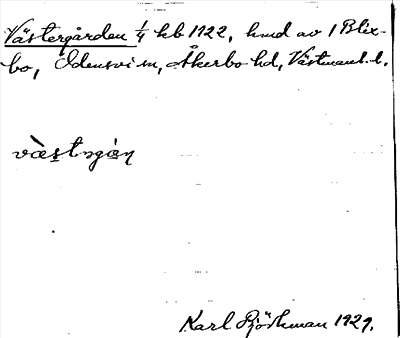 Västergården 1/4 kb 1922, hmd av 1 Blix-
bo, Odensvi sn, Åkerbo hd, Västmanl. l.
væstngɑ̀ɳ
Karl Björkman 1929.